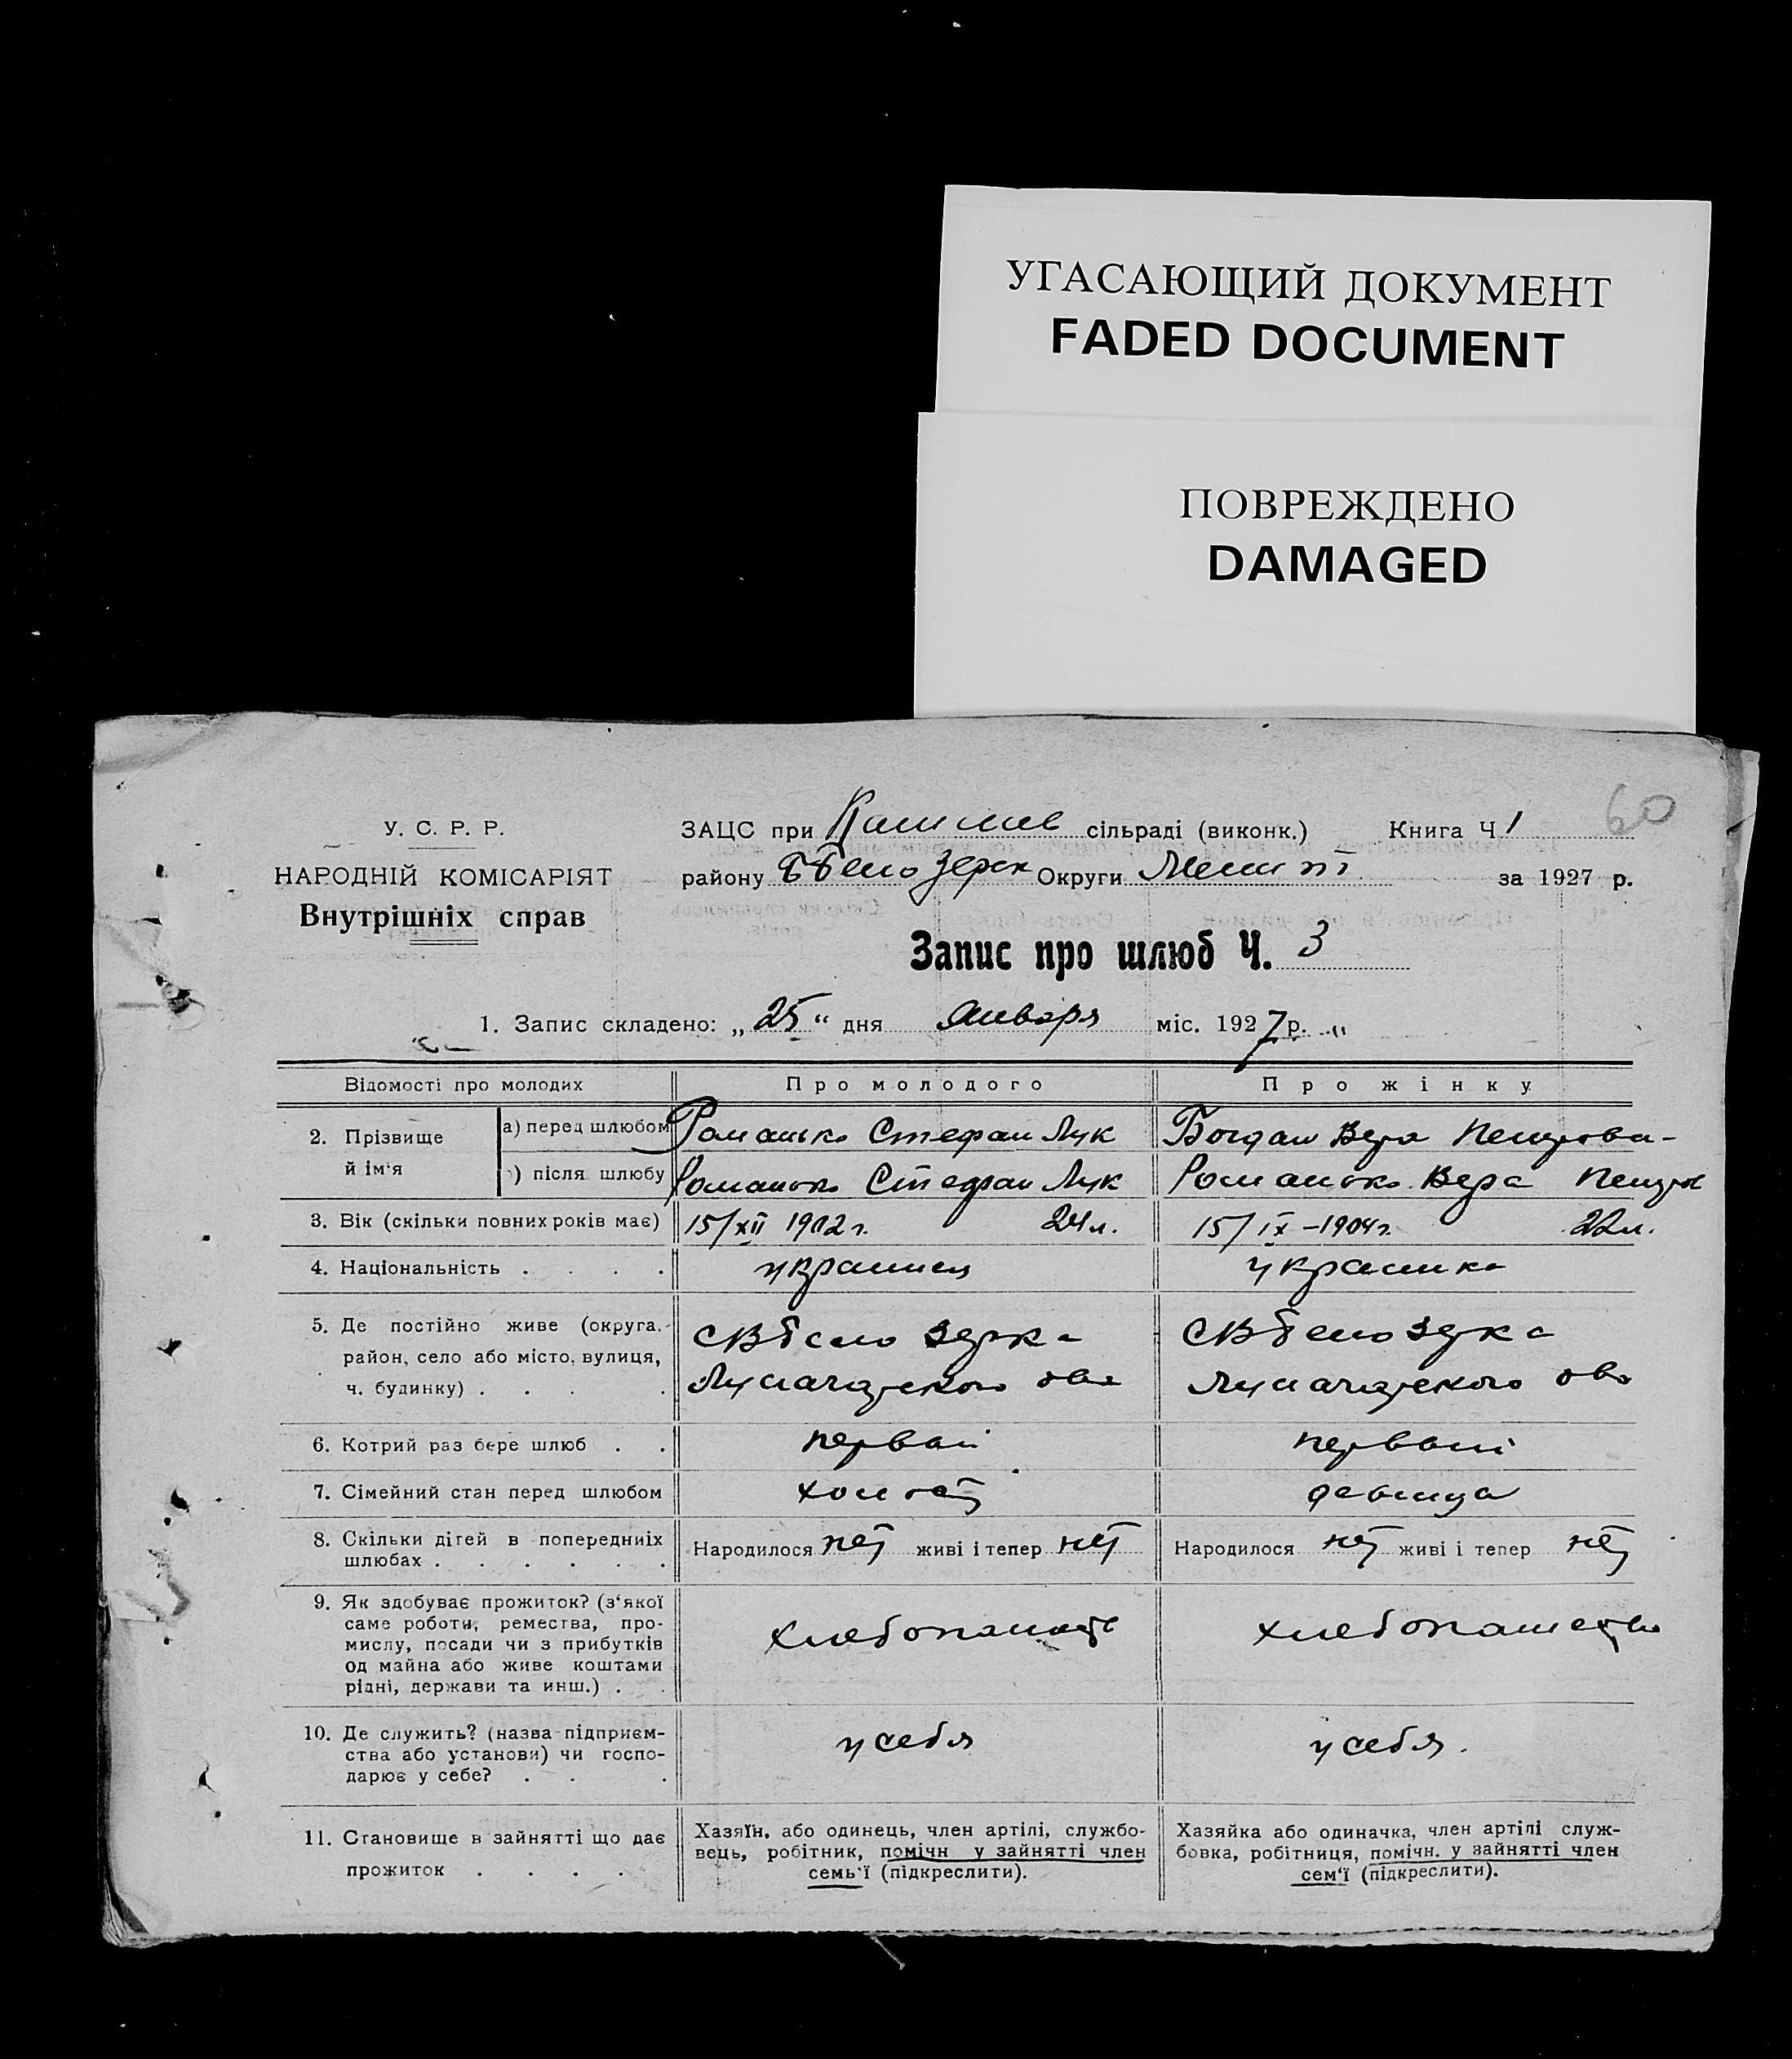 УГАСАЮЩИЙ ДОКУМЕНТ
FADED DOCUMENT
ПОВРЕЖДЕНО
DAMAGED
60
У. С. Р. Р.
НАРОДНІЙ КОМІСАРІЯТ
Внутрішніх справ
ЗАЦС при сільраді (виконк.) Книга Ч 1
району Округи Мелит за 1927 р.
Запис про шлюб Ч. 3
1. Запис складено: „25“ дня Января міс. 1927 р.
Відомості про молодих
Про молодого
Про жінку
2. Прізвище й ім'я
а) перед шлюбом
Романько Стефан Лук
Богдан Вера
) після шлюбу
Романько Стефан Лук
Романько Вера
3. Вік (скільки повних років має)
15/XII 1902 г. 24 л.
15/IX – 1904 г. 22 л.
4. Національність . . . .
украинец
украинка
5. Де постійно живе (округа,
район, село або місто, вулиця,
ч. будинку) . . . .
6. Котрий раз бере шлюб . .
первый
первый
7. Сімейний стан перед шлюбом
холост
девица
8. Скільки дітей в попередніх
шлюбах . . . . . .
Народилося нет живі і тепер нет
Народилося нет живі і тепер нет
9. Як здобуває прожиток? (з'якої
саме роботи, ремества, про-
мислу, посади чи з прибутків
од майна або живе коштами
рідні, держави та инш.) . .
хлебопашеств
хлебопашество
10. Де служить? (назва підприєм-
ства або установи) чи госпо-
дарює у себе? . . .
у себя
у себя.
11. Становище в зайнятті що дає
прожиток . . . .
Хазяїн, або одинець, член артілі, службо-
вець, робітник, помічн у зайнятті член
семь'ї (підкреслити).
Хазяйка або одиначка, член артілі служ-
бовка, робітниця, помічн. у зайнятті член
сем'ї (підкреслити).